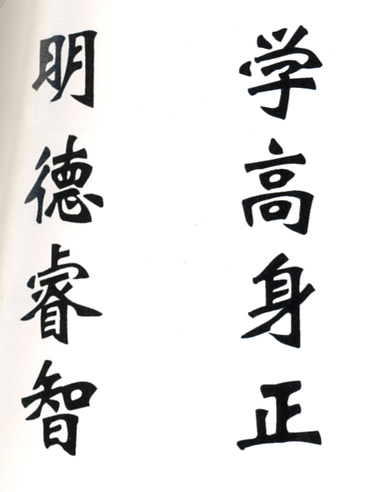 学高身正
明德睿智